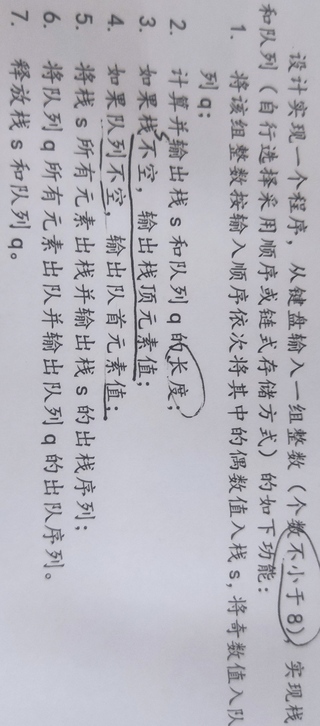 设计实现一个程序，从键盘输入一组整数（个数不小于8），实现栈
和队列（自行选择采用顺序或链式存储方式）的如下功能：
1. 将该组整数按输入顺序依次将其中的偶数值入栈s，将奇数值入队
列q；
2. 计算并输出栈s和队列q的长度；
3. 如果栈不空，输出栈顶元素值；
4. 如果队列不空，输出队首元素值；
5. 将栈s所有元素出栈并输出栈s的出栈序列；
6. 将队列q所有元素出队并输出队列q的出队序列。
7. 释放栈s和队列q。